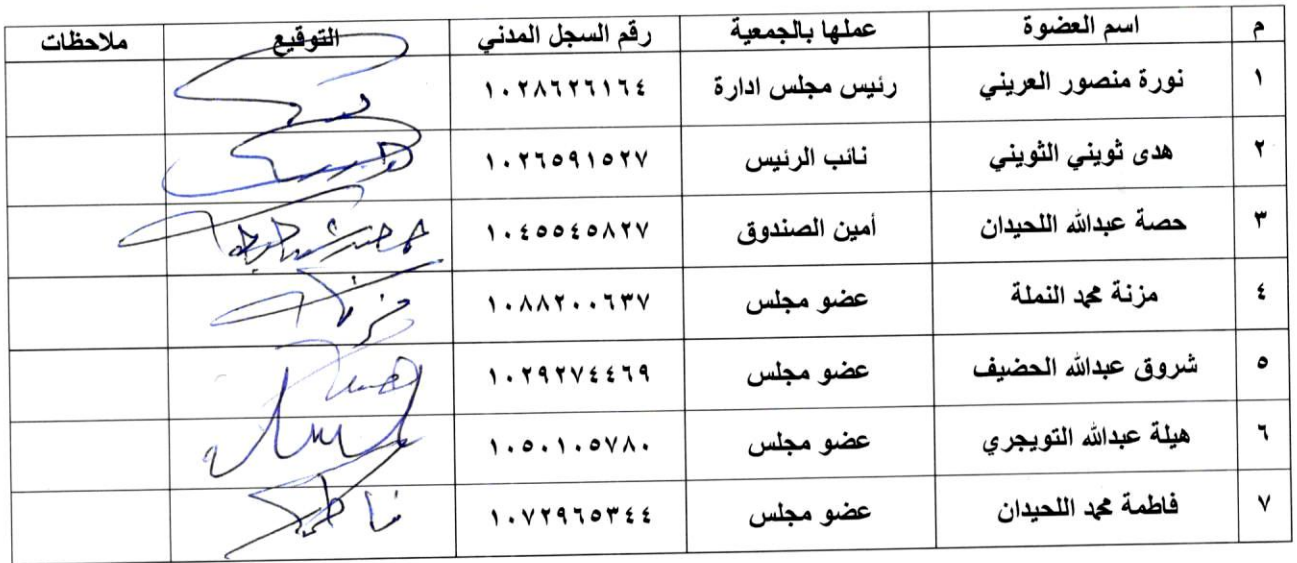 م اسم العضوة عملها بالجمعية رقم السجل المدني التوقيع ملاحظات
١ نورة منصور العريني رئيس مجلس ادارة ١٠٢٨٦٢٦١٦٤
٢ هدى ثويني الثويني نائب الرئيس ١٠٢٦٥٩١٥٢٧
٣ حصة عبدالله اللحيدان أمين الصندوق ١٠٤٥٥٤٥٨٢٧
٤ مزنة محمد النملة عضو مجلس ١٠٨٨٢٠٠٦٣٧ مزنة
٥ شروق عبدالله الحضيف عضو مجلس ١٠٢٩٢٧٤٤٦٩
٦ هيلة عبدالله التويجري عضو مجلس ١٠٥٠١٠٥٧٨٠
٧ فاطمة محمد اللحيدان عضو مجلس ١٠٧٢٩٦٥٣٤٤ فاطمة